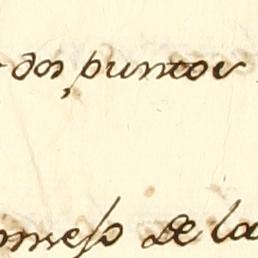 dos puntos
onsejo de la